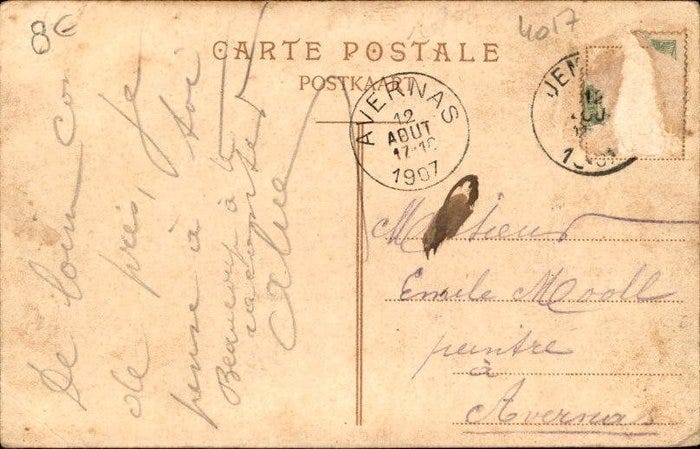 8€
4017
CARTE POSTALE
POSTKAART
AVERNAS
12
AOUT
17-18
1907
JEM
12
De loin com
de près, je
pense à toi
Beaucoup à te
raconter
Monsieur
Emile Mooll
peintre
à
Avernas